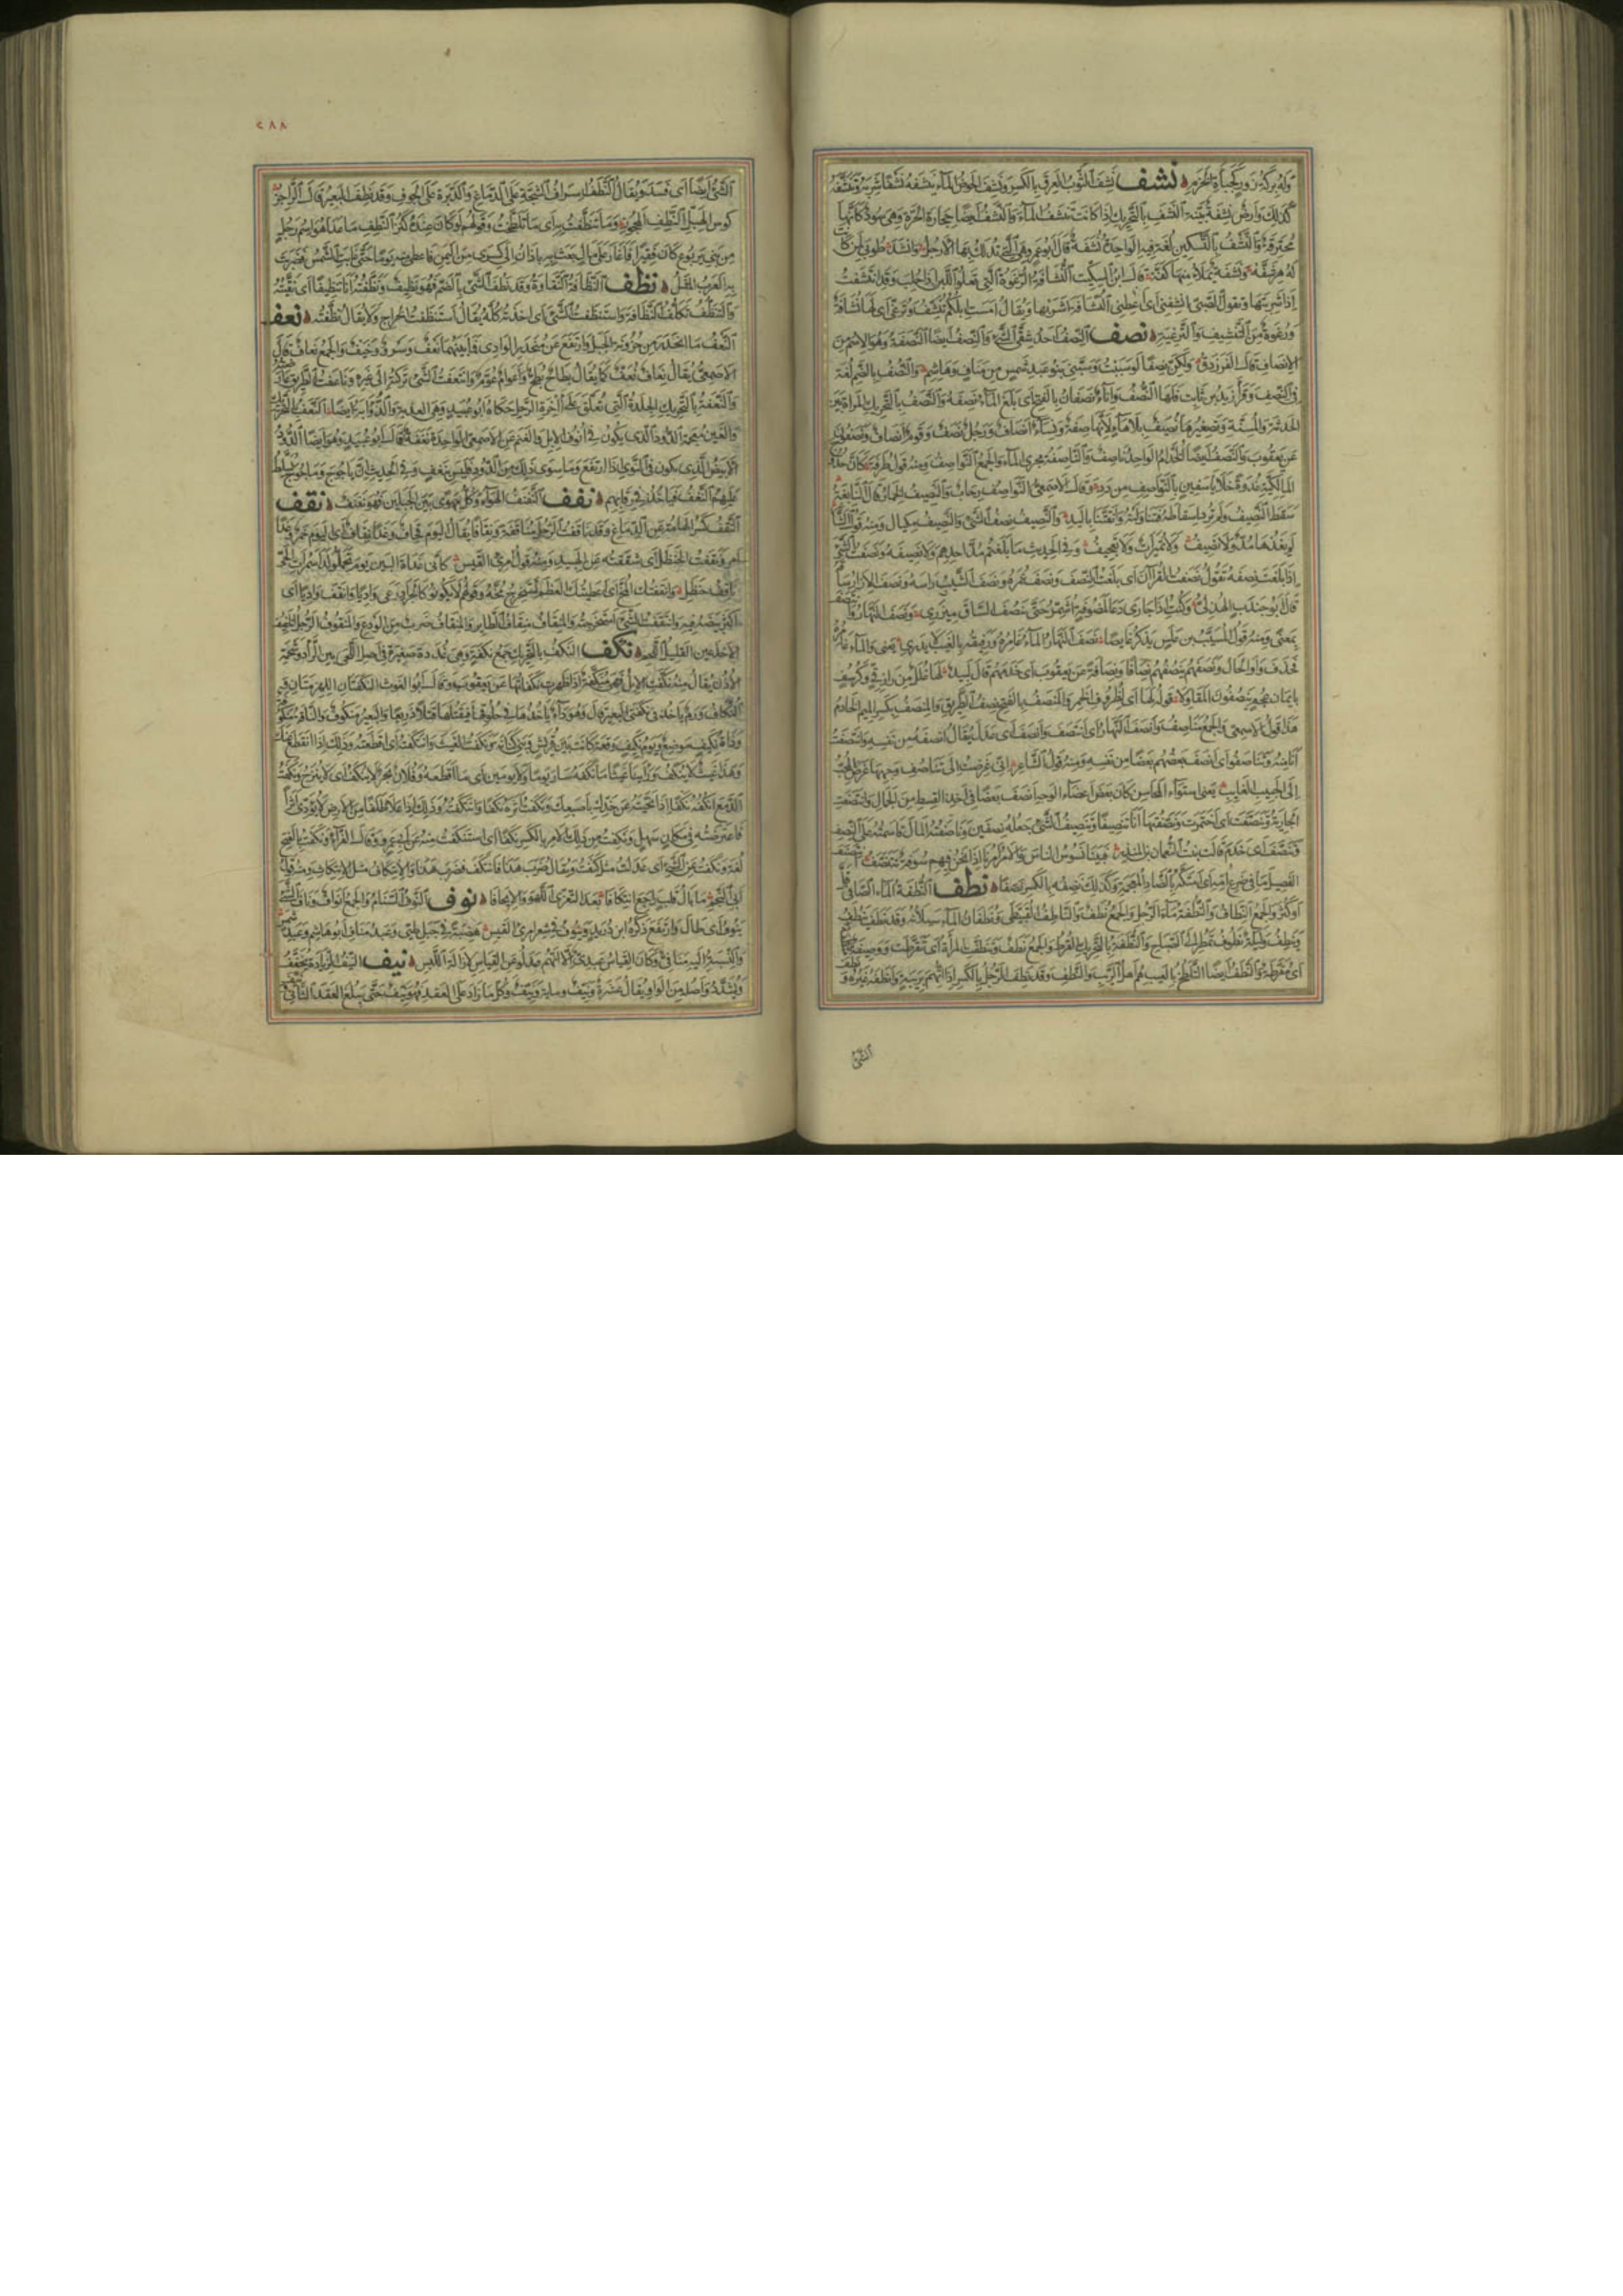 نشف نشف الثوب العرق بالكسر ونشف الحوض الماء ينشفه نشفا شربه وتنشفه
كذلك وارض نشفة بينة النشف بالتحريك اذا كانت تنشف الماء والنشف ايضا حجارة الحرة وهي سود كانها
محترقة والنشف بالتسكين لغة فيه الواحدة نشفة قال ابو عمرو وهي التي تدلك بها الارجل وانشد طوبى لمن كانت
له هرشفه ونشفة يملأ منها كفه قال ابن السكيت النشافة الرغوة التي تعلو اللبن اذا حلب وقد انتشفت
اذا شربتها ويقول الصبي انشفني اي اعطني النشافة اشربها ويقال امست ابلكم تنشف وترغي اي لها نشافة
ورغوة من التنشيف والترغية نصف النصف احد شقي الشيء والنصف ايضا النصفة وهو الاسم من
الانصاف قال الفرزدق ولكن نصفا لو سببت وسبني بنو عبد شمس من مناف وهاشم والنصف بالضم لغة
في النصف وقرأ زيد بن ثابت فلها النصف واناء نصفان بالفتح اي بلغ الماء نصفه والنصف بالتحريك المرأة بين
الحدثة والمسنة وتصغيرها نصيف بلا هاء لانها صفة ونساء انصاف ورجل نصف وقوم انصاف ونصفون
عن يعقوب والنصف ايضا الخدام الواحد ناصف والناصفة مجرى الماء والجمع النواصف ومنه قول طرفة كأن حدوج
المالكية غدوة خلايا سفين بالنواصف من دد وقال الاصمعي النواصف رحاب والنصيف الخمار قال النابغة
سقط النصيف ولم ترد اسقاطه فتناولته واتقتنا باليد والنصيف نصف الشيء والنصيف مكيال ومنه قول الشاعر
لم يغذها مد ولا نصيف ولا تميرات ولا تعجيف وفي الحديث ما بلغتم مد احدهم ولا نصيفه ونصفت الشيء
اذا بلغت نصفه تقول نصفت القرآن اي بلغت النصف ونصف عمره ونصف الشيب رأسه ونصف الازار ساقه
قال ابو جندب الهذلي وكنت اذا جاري دعا لمضوفة اشمر حتى ينصف الساق مئزري ونصف النهار وانتصف
بمعنى ومنه قول المسيب بن علس يذكر غايصا نصف النهار الماء غامره ورفيقه بالغيب لا يدري يعني والماء غامره
فحذف واو الحال ونصفهم ينصفهم نصافا ونصافة عن يعقوب اي خدمهم قال لبيد لها غلل من رازقي وكرسف
بايمان عجم ينصفون المقاولا قوله لها اي لظروف الخمر والمنصف بالفتح نصف الطريق والمنصف بكسر الميم الخادم
هذا قول الاصمعي والجمع مناصف وانصف النهار اي انتصف وانصف اي عدل يقال انصفه من نفسه وانتصفت
انا منه وتناصفوا اي انصف بعضهم بعضا من نفسه ومنه قول الشاعر اني غرضت الى تناصف وجهها غرض المحب
الى الحبيب الغايب يعني استواء المحاسن كأن بعض اعضاء الوجه انصف بعضا في اخذ القسط من الجمال وانتصفت
الجارية وتنصفت اي اختمرت ونصفتها انا تنصيفا وتنصيف الشيء جعله نصفين وناصفته المال قاسمته على النصف
وتنصف اي خدم قالت بنت النعمان بن المنذر فبينا نسوس الناس والامر امرنا اذا نحن فيهم سوقة نتنصف
نطف النطفة الماء الصافي قل
او كثر والجمع النطاف والنطفة ماء الرجل والجمع نطف والناطف القبيطى ونطفان الماء سيلانه وقد نطف ينطف
وينطف وليلة نطوف تمطر الى الصباح والنطفة بالتحريك القرط والجمع نطف وتنطفت المرأة اي تقرطت ووصيفة منطفة
اي مقرطة والنطف ايضا التلطخ بالعيب هم اهل الريب والنطف وقد نطف الرجل بالكسر اذا اتهم بريبة وانطفه غيره و
الشيء
٢٨٨
الشيء ايضا اي فسد ويقال النطف اشراف الشجة على الدماغ والدبرة على الجوف وقد نطف البعير قال الراجز
كوس الهبل النطف المحجوز وما تنطفت به اي ما تلطخت وقولهم لو كان عنده كنز النطف ما عدا هو اسم رجل
من بني يربوع كان فقيرا فاغار على مال بعث به باذان الى كسرى من اليمن فاعطى منه يوما حتى غابت الشمس فضربت
به العرب المثل نظف النظافة النقاوة وقد نظف الشيء بالضم فهو نظيف ونظفته انا تنظيفا اي نقيته
والتنظف تكلف النظافة واستنظفت الشيء اي اخذته كله يقال استنظفت الخراج ولا يقال نظفته نعف
النعف ما انحدر من حزونة الجبل وارتفع عن منحدر الوادي فما بينهما نعف وسرو وخيف والجمع نعاف قال
الاصمعي يقال نعاف نعف كما يقال بطاح بطح واعوام عوم وانتعفت الشيء تركته الى غيره وناعفت الطريق عارضته
والنعفة بالتحريك الجلدة التي تعلق على آخرة الرحل حكاه ابو عبيد وهي العذبة والذؤابة ايضا النغف بالتحريك
والغين معجمة الدود الذي يكون في انوف الابل والغنم عن الاصمعي الواحدة نغفة قال ابو عبيد وهو ايضا الدود
الابيض الذي يكون في النوى اذا انقع وما سوى ذلك من الدود فليس بنغف وفي الحديث ان ياجوج وماجوج يسلط
عليهم النغف فياخذ في رقابهم نفف النفنف الهواء وكل مهوى بين الجبلين فهو نفنف نقف
النقف كسر الهامة عن الدماغ وقد ناقفت الرجل مناقفة ونقافا يقال اليوم قحاف وغدا نقاف اي اليوم خمر وغدا
امر ونقفت الحنظل اي شققته عن الهبيد ومنه قول امرئ القيس كاني غداة البين يوم تحملوا لدى سمرات الحي
ناقف حنظل وانقفتك المخ اي اعطيتك العظم تستخرج مخه
نكف النكف بالتحريك جمع نكفة وهي غددة صغيرة في اصل اللحي بين الرأد وشحمة
الاذن يقال منه نكفت الابل فهي منكفة اذا ظهرت نكفاتها عن يعقوب وقال ابو الغوث النكفتان اللهزمتان
وذات نكيف موضع ويوم نكيف وقعة كانت بين قريش وبني كنانة ونكفت الغيث وانتكفته اي اقطعته وذلك اذا انقطع عنك
وهذا غيث لا ينكف ورأينا غيثا ما نكفه احد سار يوما ولا يومين اي ما اقطعه وفلان بحر لا ينكف اي لا ينزح ونكفت
الدمع انكفه نكفا اذا نحيته عن خدك باصبعك ونكفت اثره نكفا وانتكفته وذلك اذا علا ظلفا من الارض لا يؤدي اثرا
فاعترضته في مكان سهل ونكفت من ذلك الامر بالكسر نكفا اي استنكفت منه عن ابي عمرو وقال الفراء ونكفت بالفتح
لغة ونكفت عن الشيء اي عدلت مثل كنفت ويقال ضرب هذا فانتكف فضرب هذا والانتكاف مثل الانتكاث ومنه قول
ابي النجم ما بال قلب راجع انتكافا بعد التعزي اللهو والايجافا نوف النوف السنام والجمع انواف وناف الشيء
ينوف اي طال وارتفع ذكره ابن دريد وينوف في شعر امرئ القيس هضبة في جبل طيئ وعبد مناف ابو هاشم وعبد شمس
والنسبة اليه منافي وكان القياس عبدي الا انهم عدلوا عن القياس لازالة اللبس نيف النيف الزيادة يخفف
ويشدد واصله من الواو يقال عشرة ونيف ومائة ونيف وكل ما زاد على العقد فهو نيف حتى يبلغ العقد الثاني